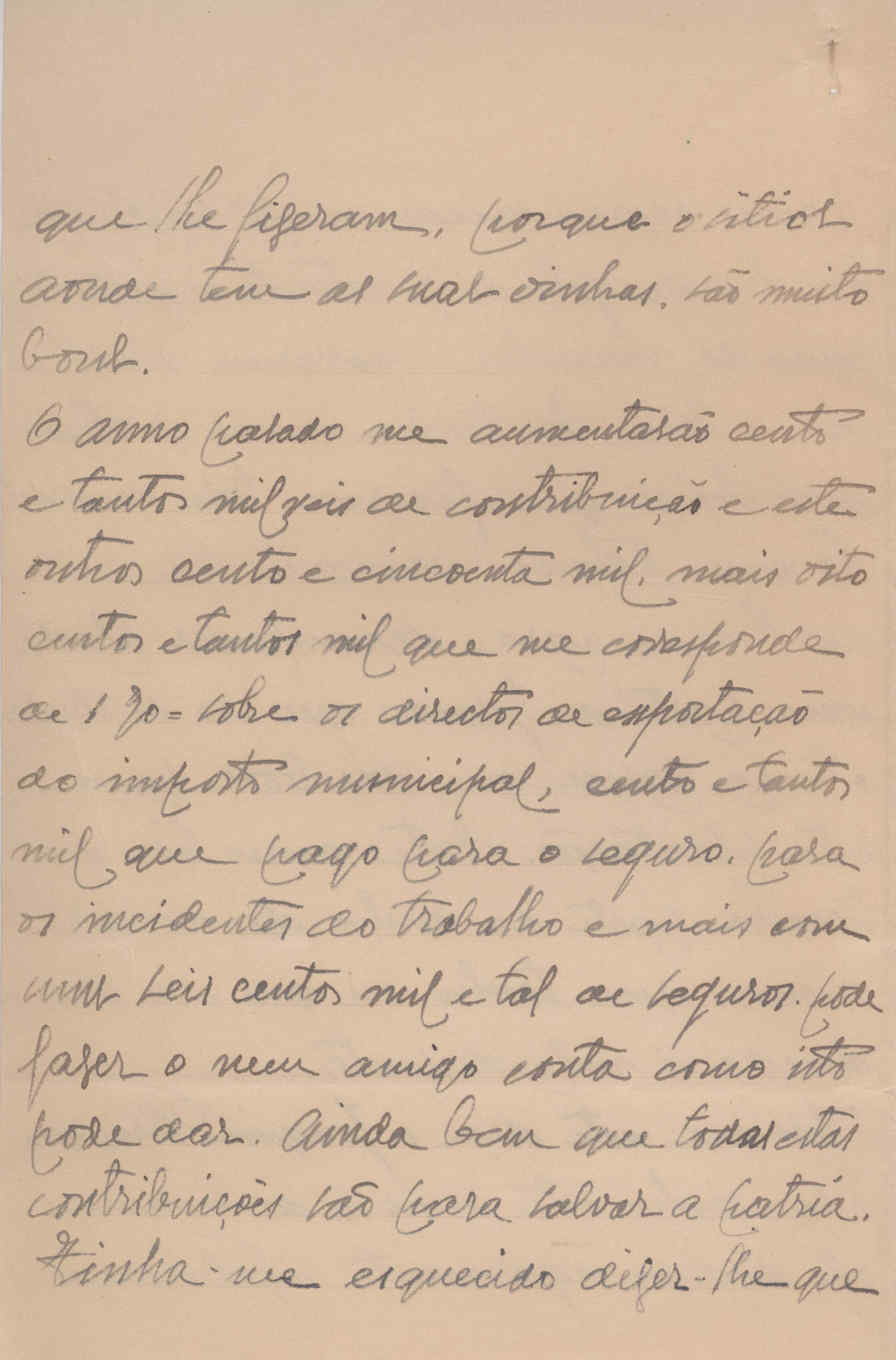 que lhe fizeram, porque o sitios
aonde tem as suas vinhas, são muito
bons.
O anno pasado me aumentarão cento
e tantos mil reis de contribuição e este
outros cento e cincoenta mil, mais oito
centos e tantos mil que me coresponde
de 1 %= sobre os directos de exportação
do imposto municipal, cento e tantos
mil que pago para o seguro, para
os incidentes do trabalho e mais com
uns seis centos mil e tal de seguros. pode
fazer o meu amigo conta como isto
pode dar. Ainda bem que todas estas
contribuições são para salvar a patria.
Tinha-me esquecido dizer-lhe que